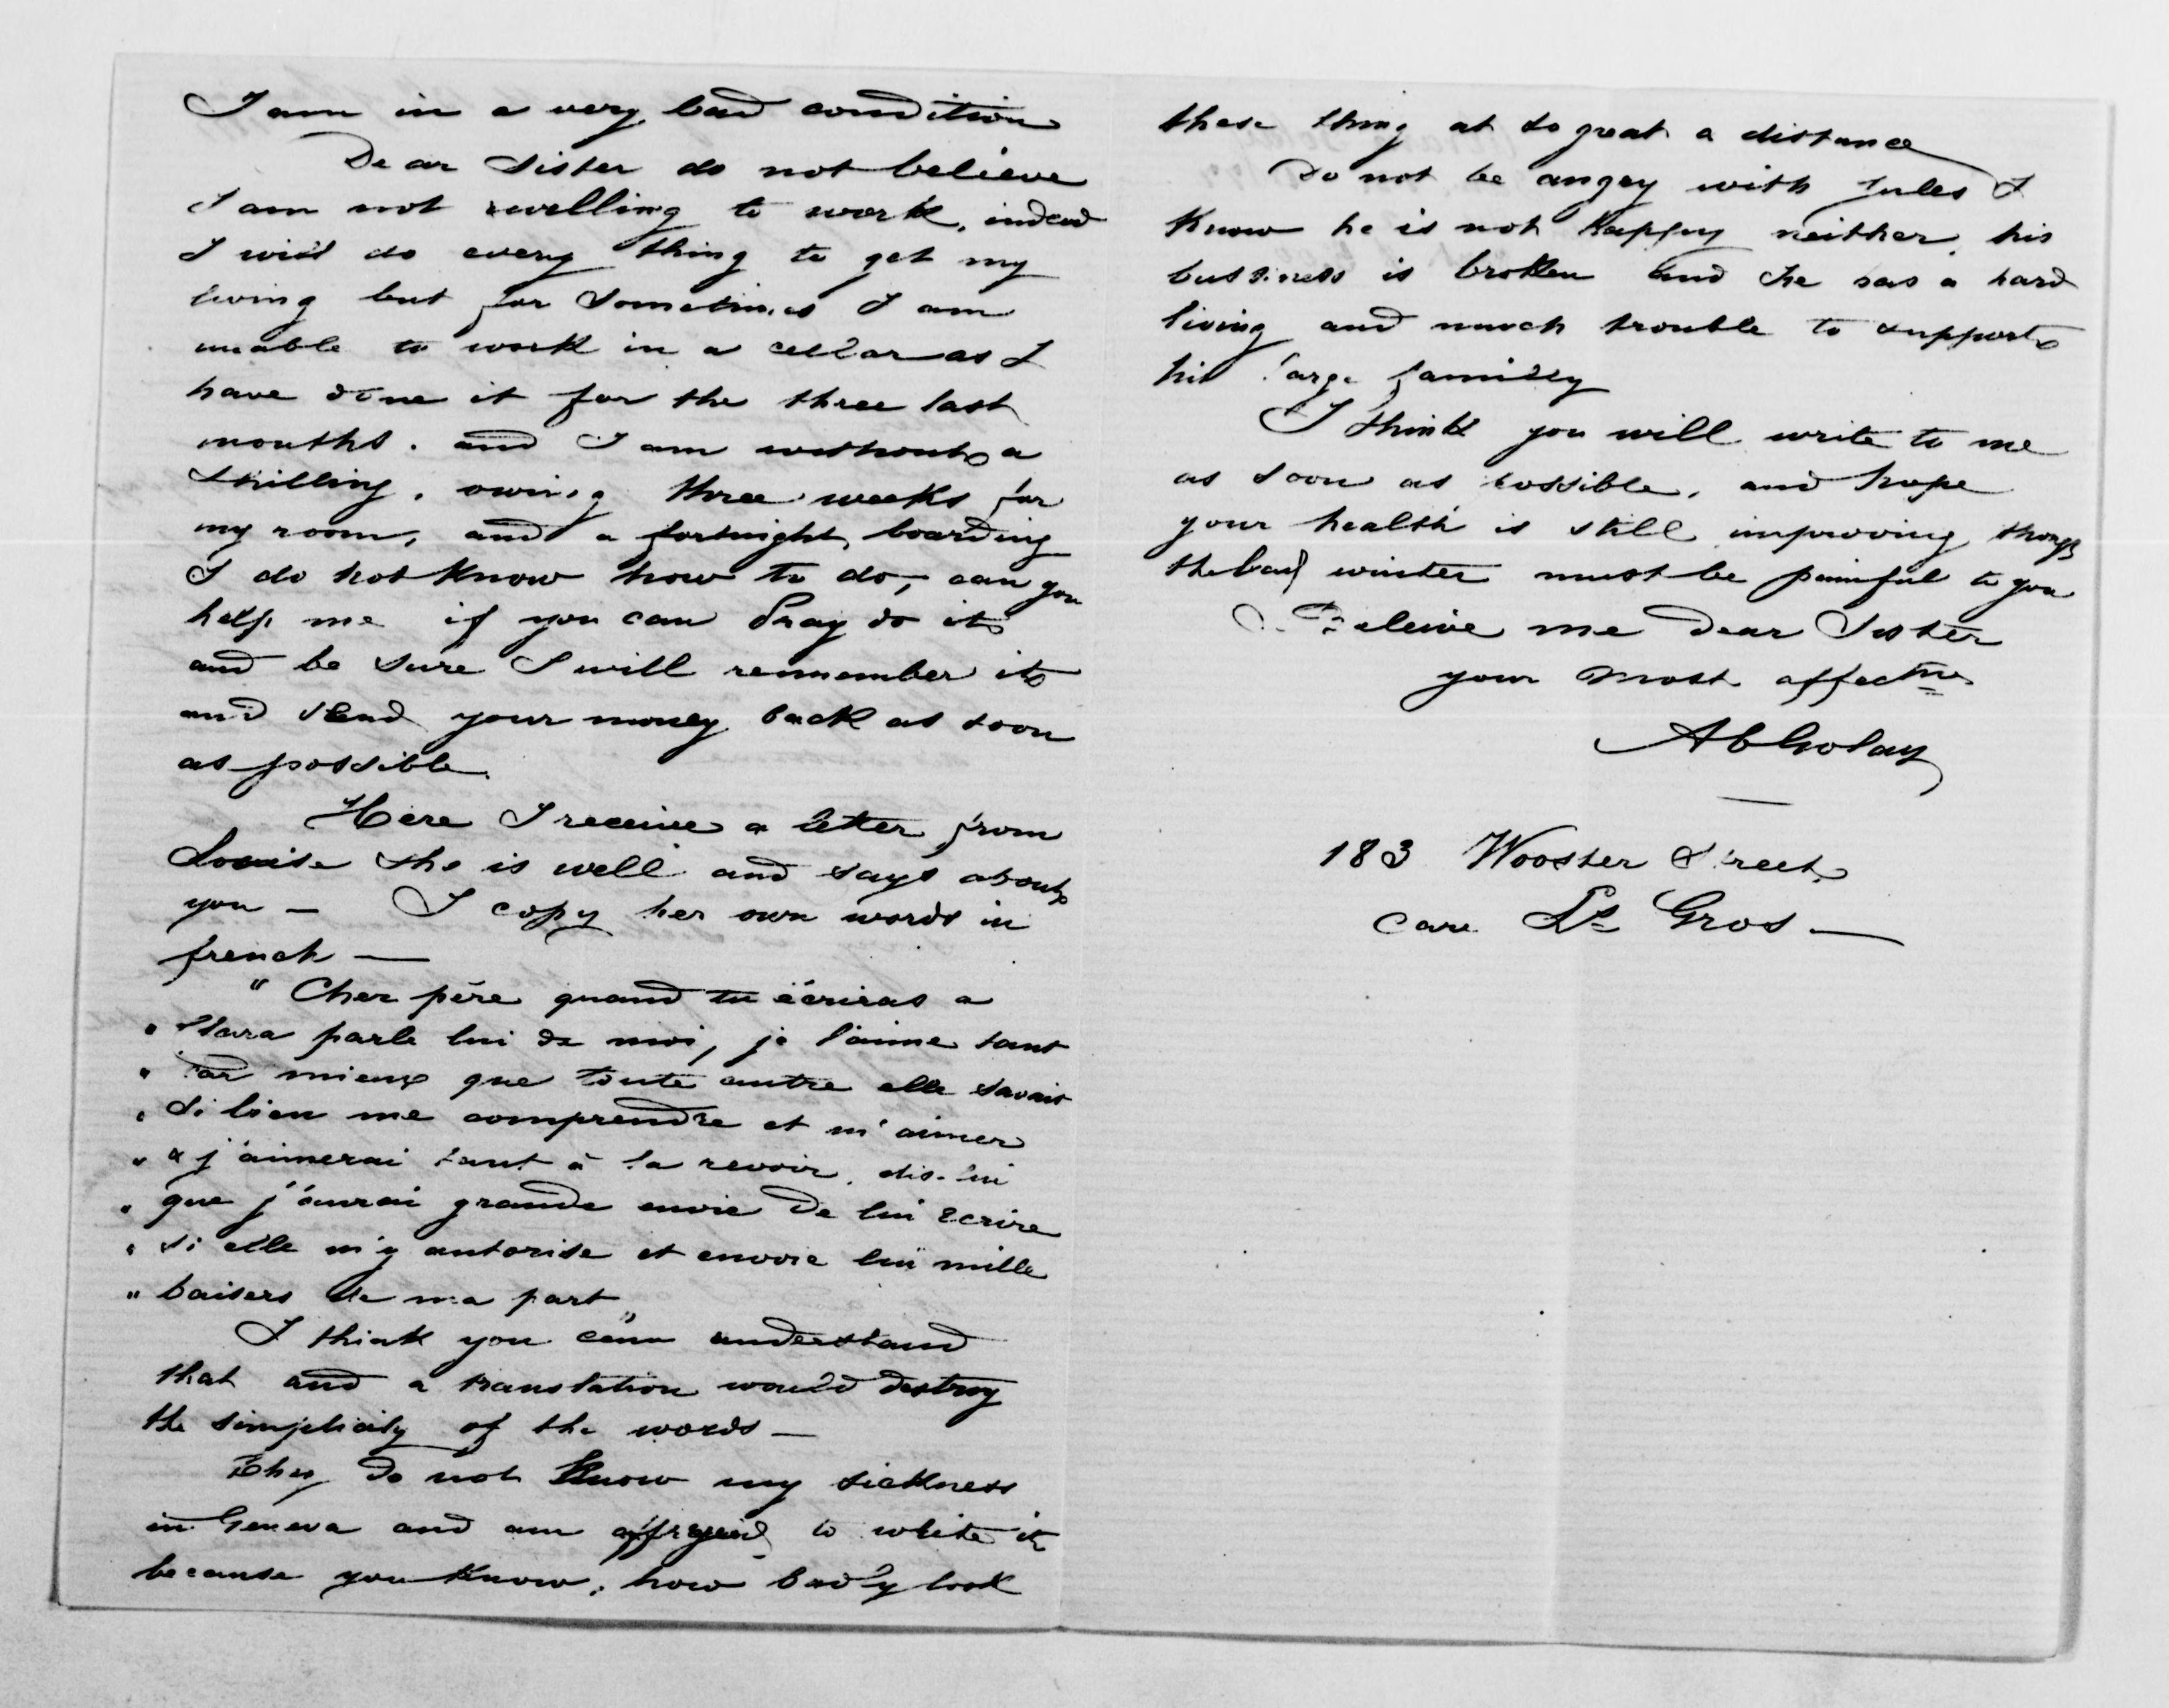 I am in a very bad condition
Dear Sister do not believe
I am not willing to work, indeed
I will do every thing to get my
living but for sometimes I am
unable to work in a cellar as I
have done it for the three last
months. and I am without a
shilling, owing three weeks for
my room, and a fortnight boarding
I do not know how to do, can you
help me if you can Pray do it
and be sure I will remember it
and send your money back as soon
as possible.
Here I receive a letter from
Louise she is well and says about
you — I copy her own words in
french —
" Cher père quand tu écriras a
" Clara parle lui de moi, je l'aime tant
" car mieux que toute autre elle savait
" si bien me comprendre et m'aimer
" & j'aimerai tant à la revoir, dis-lui
" que j'aurai grande envie de lui écrire
" si elle m'y autorise et envoie lui mille
" baisers de ma part "
I think you can understand
that and a translation would destroy
the simplicity of the words —
They do not know my sickness
in Geneva and am affrayed to write it
because you know, how badly look
these thing at so great a distance
Do not be angry with Jules I
know he is not happy neither his
bussiness is broken and he has a hard
living and much trouble to support
his large familly
I think you will write to me
as soon as possible, and hope
your health is still improoving, though
the bad winter must be painful to you
Beleive me dear Sister
your most affectne
Ab Golay
183 Wooster Street
care Ls Gros —